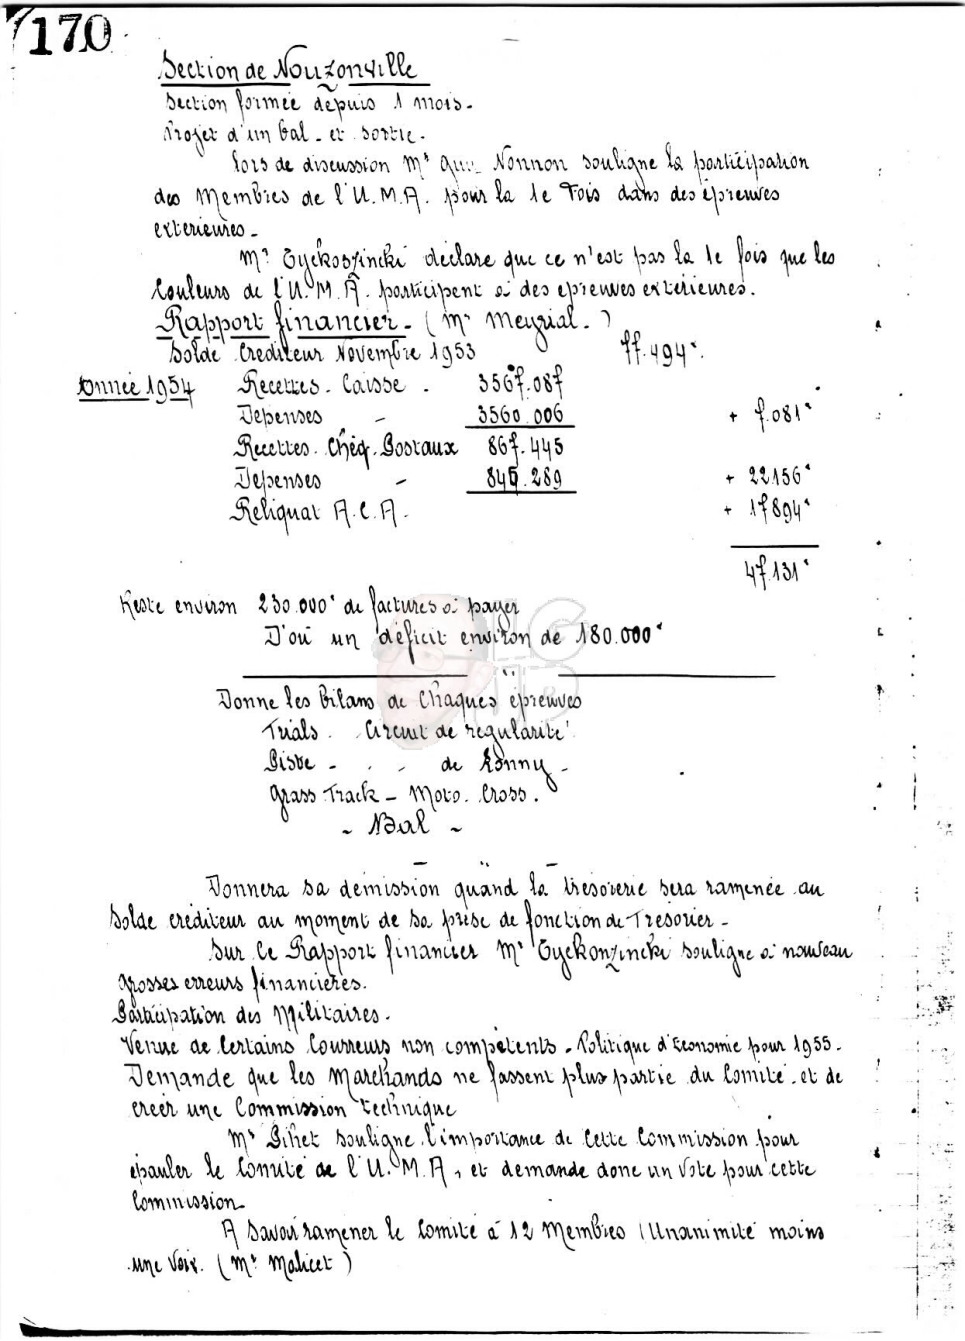 170
Section de Nouzonville
Section formée depuis 1 mois.
Projet d'un bal - et sortie.
Lors de discussion Mr Nonnon souligne la participation
des Membres de l'U.M.A. pour la 1e Fois dans des épreuves
extérieures -
déclare que ce n'est pas la 1e fois que les
Couleurs de l'U.M.A. participent à des épreuves extérieures.
Rapport financier - (Mr Meyrial.)
Solde Créditeur Novembre 1953 77.494
Année 1954 Recettes - Caisse - 3567.087
Dépenses - 3560.006 + 7.081
Recettes. Chèq. Postaux 867.445
Dépenses - 845.289 + 22156
Reliquat A.C.A. + 17894
47.131
Reste environ 230.000 de factures à payer
D'où un déficit environ de 180.000
Donne les Bilans de Chaques épreuves
Trials. Circuit de régularité
Piste - de Lonny -
Grass-Track - Moto. Cross.
- Bal -
Donnera sa démission quand la trésorerie sera ramenée au
Solde créditeur au moment de sa prise de fonction de Trésorier -
Sur Ce Rapport financier Mr souligne à nouveau
grosses erreurs financières.
Participation des Militaires.
Venue de Certains Coureurs non compétents - Politique d'Economie pour 1955.
Demande que les Marchands ne fassent plus partie du Comité - et de
créer une Commission technique
Mr Pihet souligne l'importance de Cette Commission pour
épauler le Comité de l'U.M.A, et demande donc un vote pour cette
Commission.
A savoir ramener le Comité à 12 Membres (Unanimité moins
une voix. (Mr Malicet)